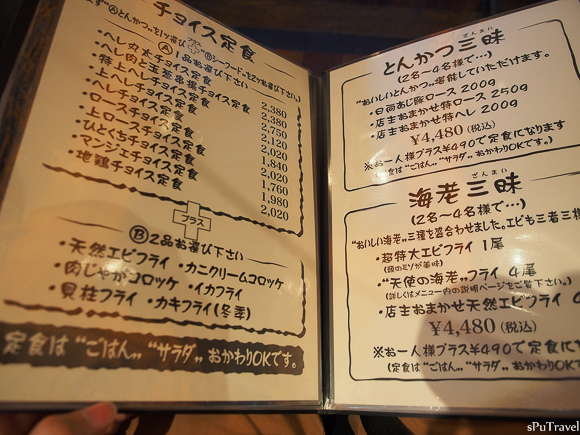 チョイス定食
Ⓐとんかつ"を1ッ選び プラス Ⓑシーフード"を2ケお選び下さい。
Ⓐ1品お選び下さい
・ヘレ丸太チョイス定食 2,380
・ヘレ肉と玉葱串揚チョイス定食 2,380
・特上ヘレチョイス定食 2,750
・上ヘレチョイス定食 2,120
・ヘレチョイス定食 2,020
・ロースチョイス定食 1,840
・上ロースチョイス定食 2,020
・ひとくちチョイス定食 1,760
・マンジェチョイス定食 1,980
・地鶏チョイス定食 2,020
プラス
Ⓑ2品お選び下さい
・天然エビフライ ・カニクリームコロッケ
・肉じゃがコロッケ ・イカフライ
・貝柱フライ ・カキフライ(冬季)
定食は "ごはん„ "サラダ„ おかわりOKです。
とんかつ三昧
ざんまい
(2名〜4名様で…)
"おいしいとんかつ„堪能していただけます。
・日南あじ豚ロース 200g
・店主おまかせ特ロース 250g
・店主おまかせ特ヘレ 200g
¥4,480(税込)
※お一人様プラス¥490で定食になります
(定食は"ごはん„"サラダ„おかわりOKです。)
海老三昧
ざんまい
(2名〜4名様で…)
"おいしい海老„三種を盛合わせました。エビも三者三様
・超特大エビフライ 1尾
(頭のミソが美味)
・"天使の海老„フライ 4尾
(詳しくはメニュー内の説明ページをご覧下さい。)
・店主おまかせ天然エビフライ
¥4,480(税込)
※お一人様プラス¥490で定食に
(定食は"ごはん„"サラダ„おかわりOKです
sPuTravel